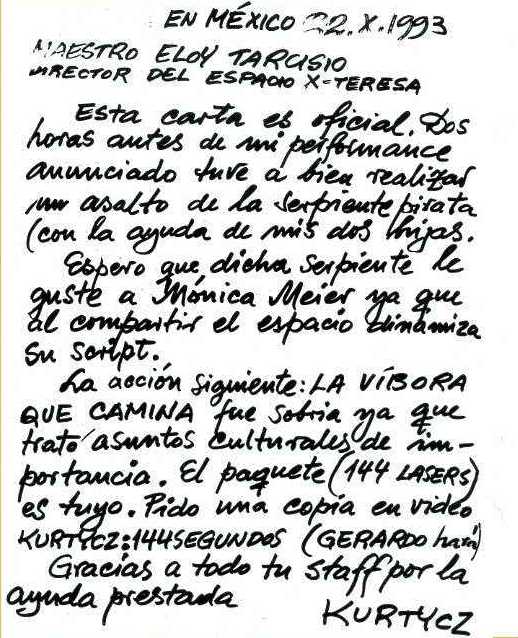 EN MÉXICO 22.X.1993
MAESTRO ELOY TARCISIO
DIRECTOR DEL ESPACIO X-TERESA
Esta carta es oficial. Dos
horas antes de mi performance
anunciado tuve a bien realizar
un asalto de la serpiente pirata
(con la ayuda de mis dos hijas.
Espero que dicha serpiente le
guste a Mónica Meier ya que
al compartir el espacio dinamiza
su script.
La acción siguiente: LA VÍBORA
QUE CAMINA fue sobria ya que
trató asuntos culturales de im-
portancia. El paquete (144 LASERS)
es tuyo. Pido una copia en video
KURTYCZ: 144 SEGUNDOS (GERARDO hará)
Gracias a todo tu staff por la
ayuda prestada
KURTYCZ